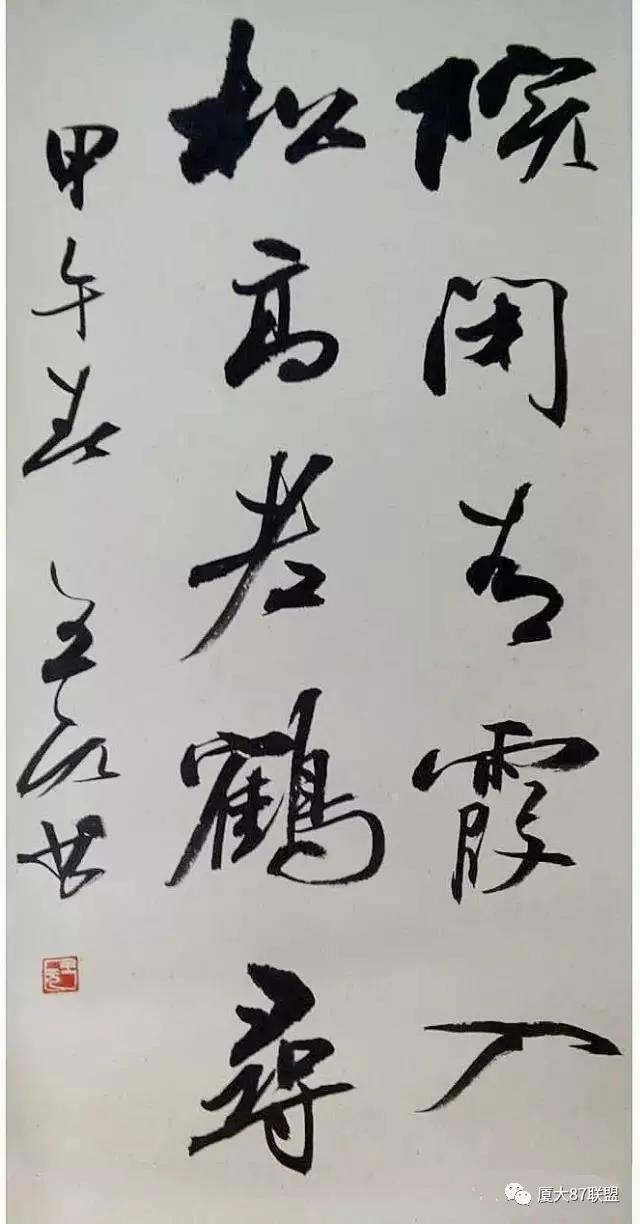 院闲青霞入
松高老鹤寻
甲午春 王元书
厦大87联盟